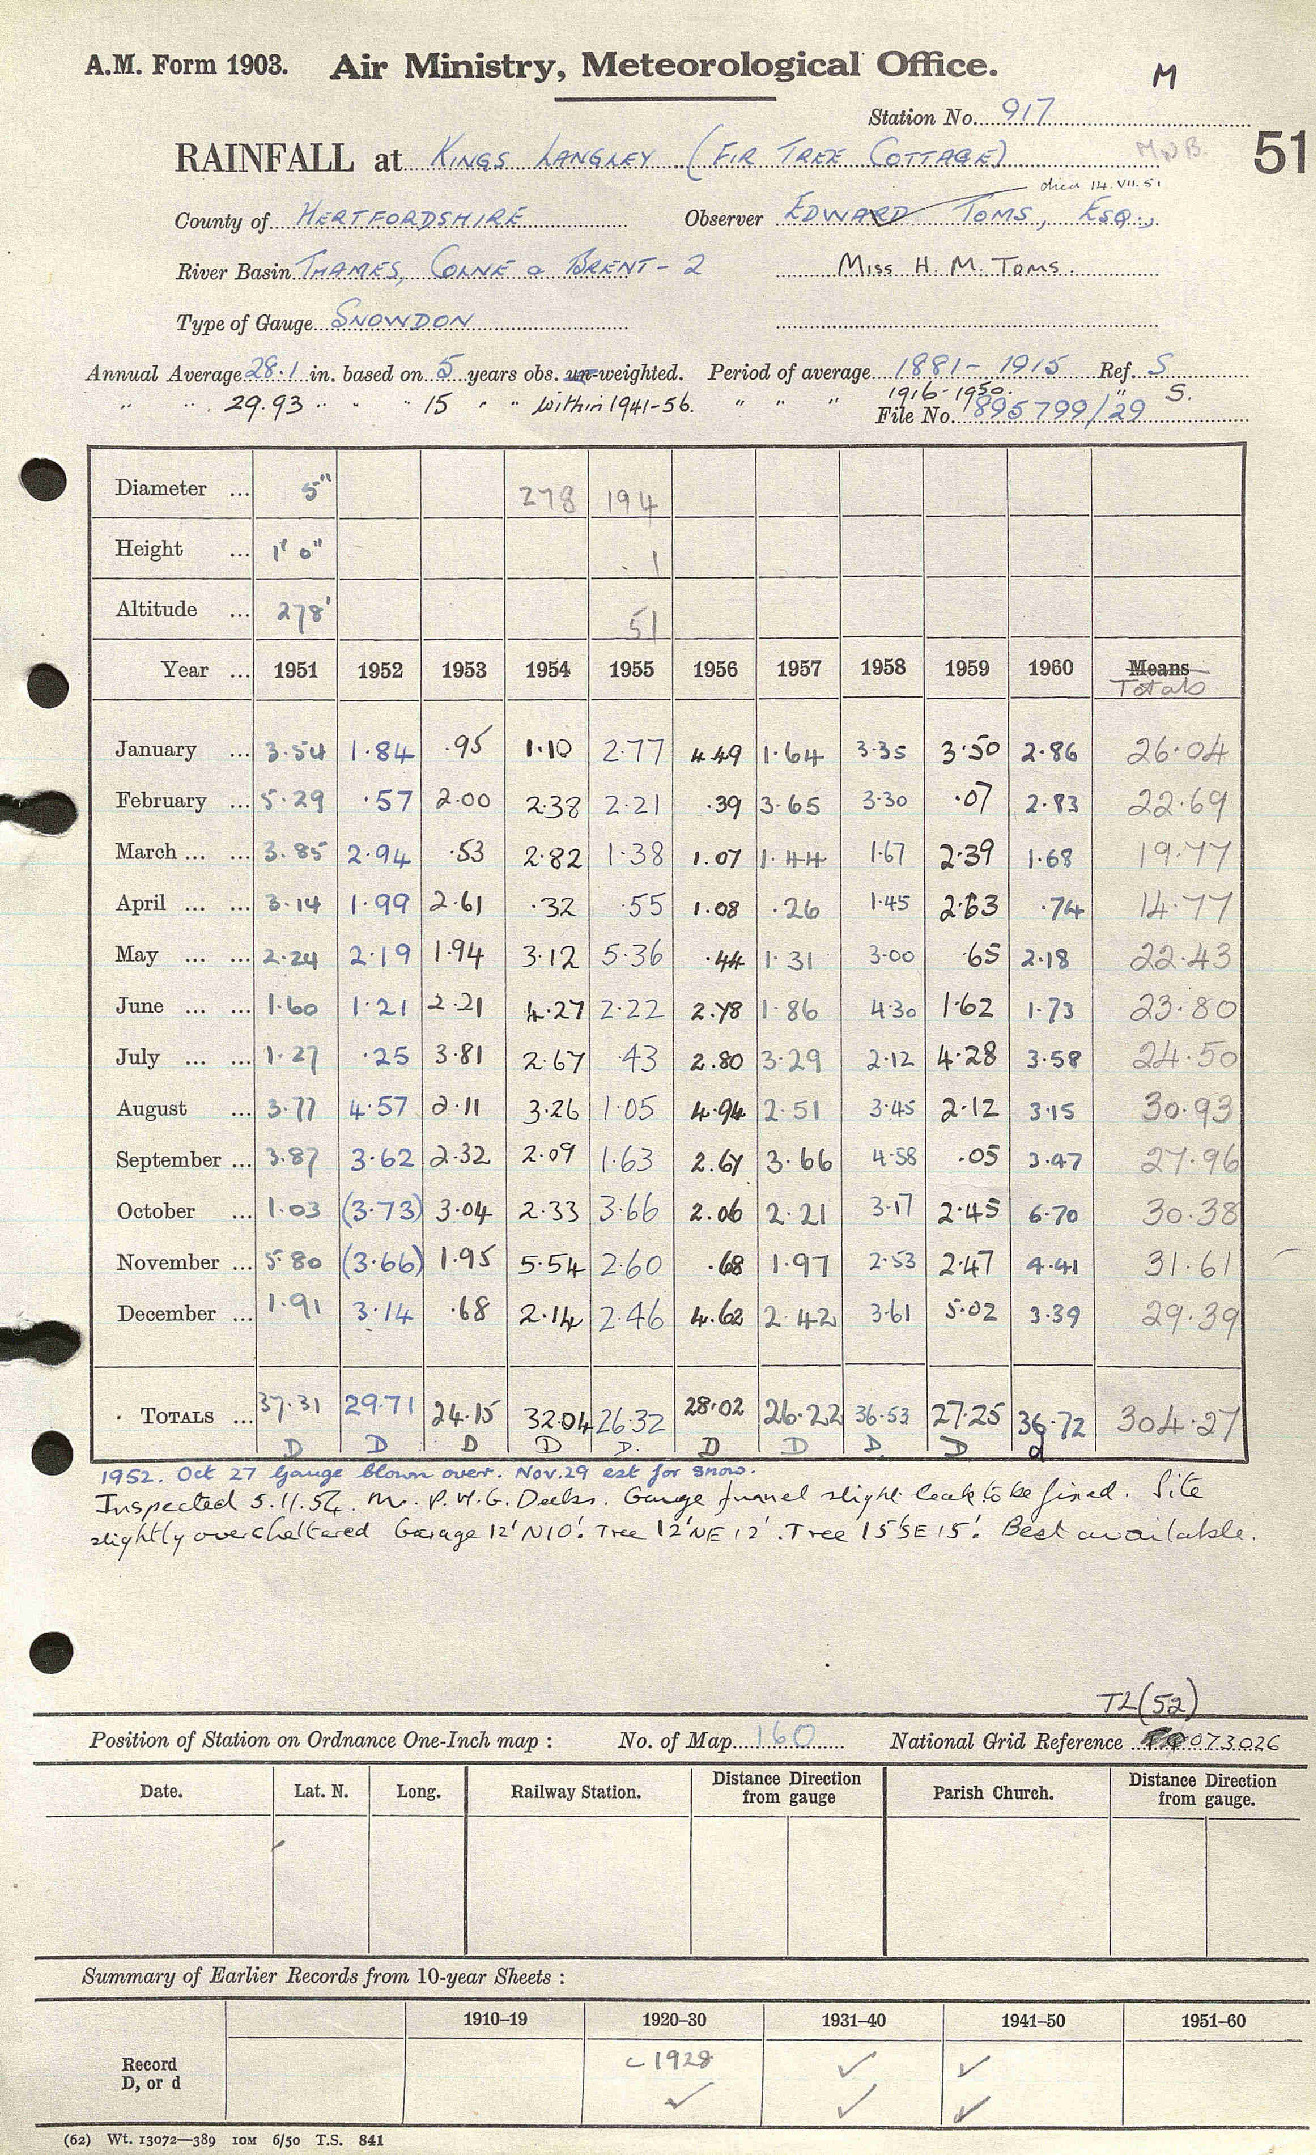 A.M. Form 1903. Air Ministry, Meteorological Office. M
Station No. 917
RAINFALL at KINGS LANGLEY (FIR TREE COTTAGE) 51
died 14.VII.51
County of HERTFORDSHIRE Observer EDWARD TOMS, ESQ.,
River Basin THAMES, COLNE & BRENT - 2 MISS H. M. TOMS.
Type of Gauge SNOWDON
Annual Average 28.1 in. based on 5 years obs. un-weighted. Period of average 1881 - 1915 Ref. S
" " 29.93 " " " 15 " " within 1941-56. " " " 1916-1950. " S.
File No. 895799/29
Diameter ... 5" 278 194
Height ... 1' 0" 1
Altitude ... 278' 51
Year ... 1951 1952 1953 1954 1955 1956 1957 1958 1959 1960 Means
Totals
January ... 3.54 1.84 .95 1.10 2.77 4.49 1.64 3.35 3.50 2.86 26.04
February ... 5.29 .57 2.00 2.38 2.21 .39 3.65 3.30 .07 2.83 22.69
March ... ... 3.85 2.94 .53 2.82 1.38 1.07 1.44 1.67 2.39 1.68 19.77
April ... ... 3.14 1.99 2.61 .32 .55 1.08 .26 1.45 2.63 .74 14.77
May ... ... 2.24 2.19 1.94 3.12 5.36 .44 1.31 3.00 .65 2.18 22.43
June ... ... 1.60 1.21 2.21 4.27 2.22 2.78 1.86 4.30 1.62 1.73 23.80
July ... ... 1.27 .25 3.81 2.67 .43 2.80 3.29 2.12 4.28 3.58 24.50
August ... 3.77 4.57 2.11 3.26 1.05 4.94 2.51 3.45 2.12 3.15 30.93
September ... 3.87 3.62 2.32 2.09 1.63 2.67 3.66 4.58 .05 3.47 27.96
October ... 1.03 (3.73) 3.04 2.33 3.66 2.06 2.21 3.17 2.45 6.70 30.38
November ... 5.80 (3.66) 1.95 5.54 2.60 .68 1.97 2.53 2.47 4.41 31.61
December ... 1.91 3.14 .68 2.14 2.46 4.62 2.42 3.61 5.02 3.39 29.39
TOTALS ... 37.31 29.71 24.15 32.04 26.32 28.02 26.22 36.53 27.25 36.72 304.27
D D D D D. D D D D d
1952. Oct 27 Gauge blown over. Nov.29 est for snow.
Inspected 5.11.54. Mr. P.H.G. Deeks. Gauge funnel slight leak to be fixed. Site
slightly oversheltered Garage 12' N10'. Tree 12' NE 12'. Tree 15' SE 15'. Best available.
TL(52)
Position of Station on Ordnance One-Inch map : No. of Map 160 National Grid Reference 073026
Date. Lat. N. Long. Railway Station. Distance Direction from gauge Parish Church. Distance Direction from gauge.
Summary of Earlier Records from 10-year Sheets :
1910–19 1920–30 1931–40 1941–50 1951–60
Record c 1928 ✓ ✓
D, or d ✓ ✓ ✓
(62) Wt. 13072—389 10M 6/50 T.S. 841